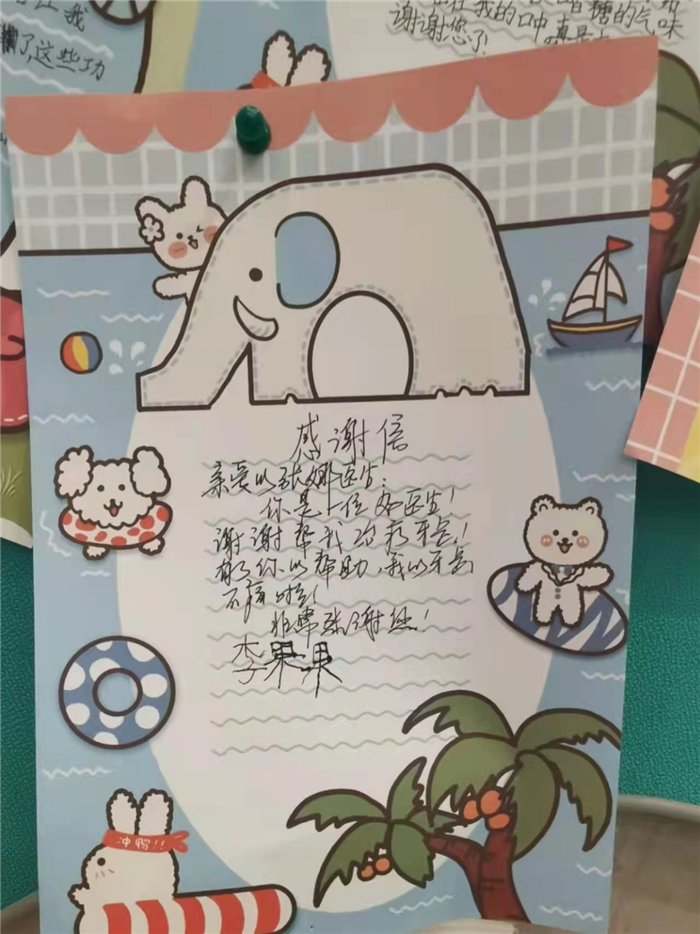 我
了,这些功
在我的口中
糖的气味
谢谢您了
感谢信
亲爱的张娜医生:
你是一位好医生!
谢谢帮我治疗牙齿!
有了你的帮助,我的牙是
不痛啦!
非常感谢您!
李果果
冲鸭!!